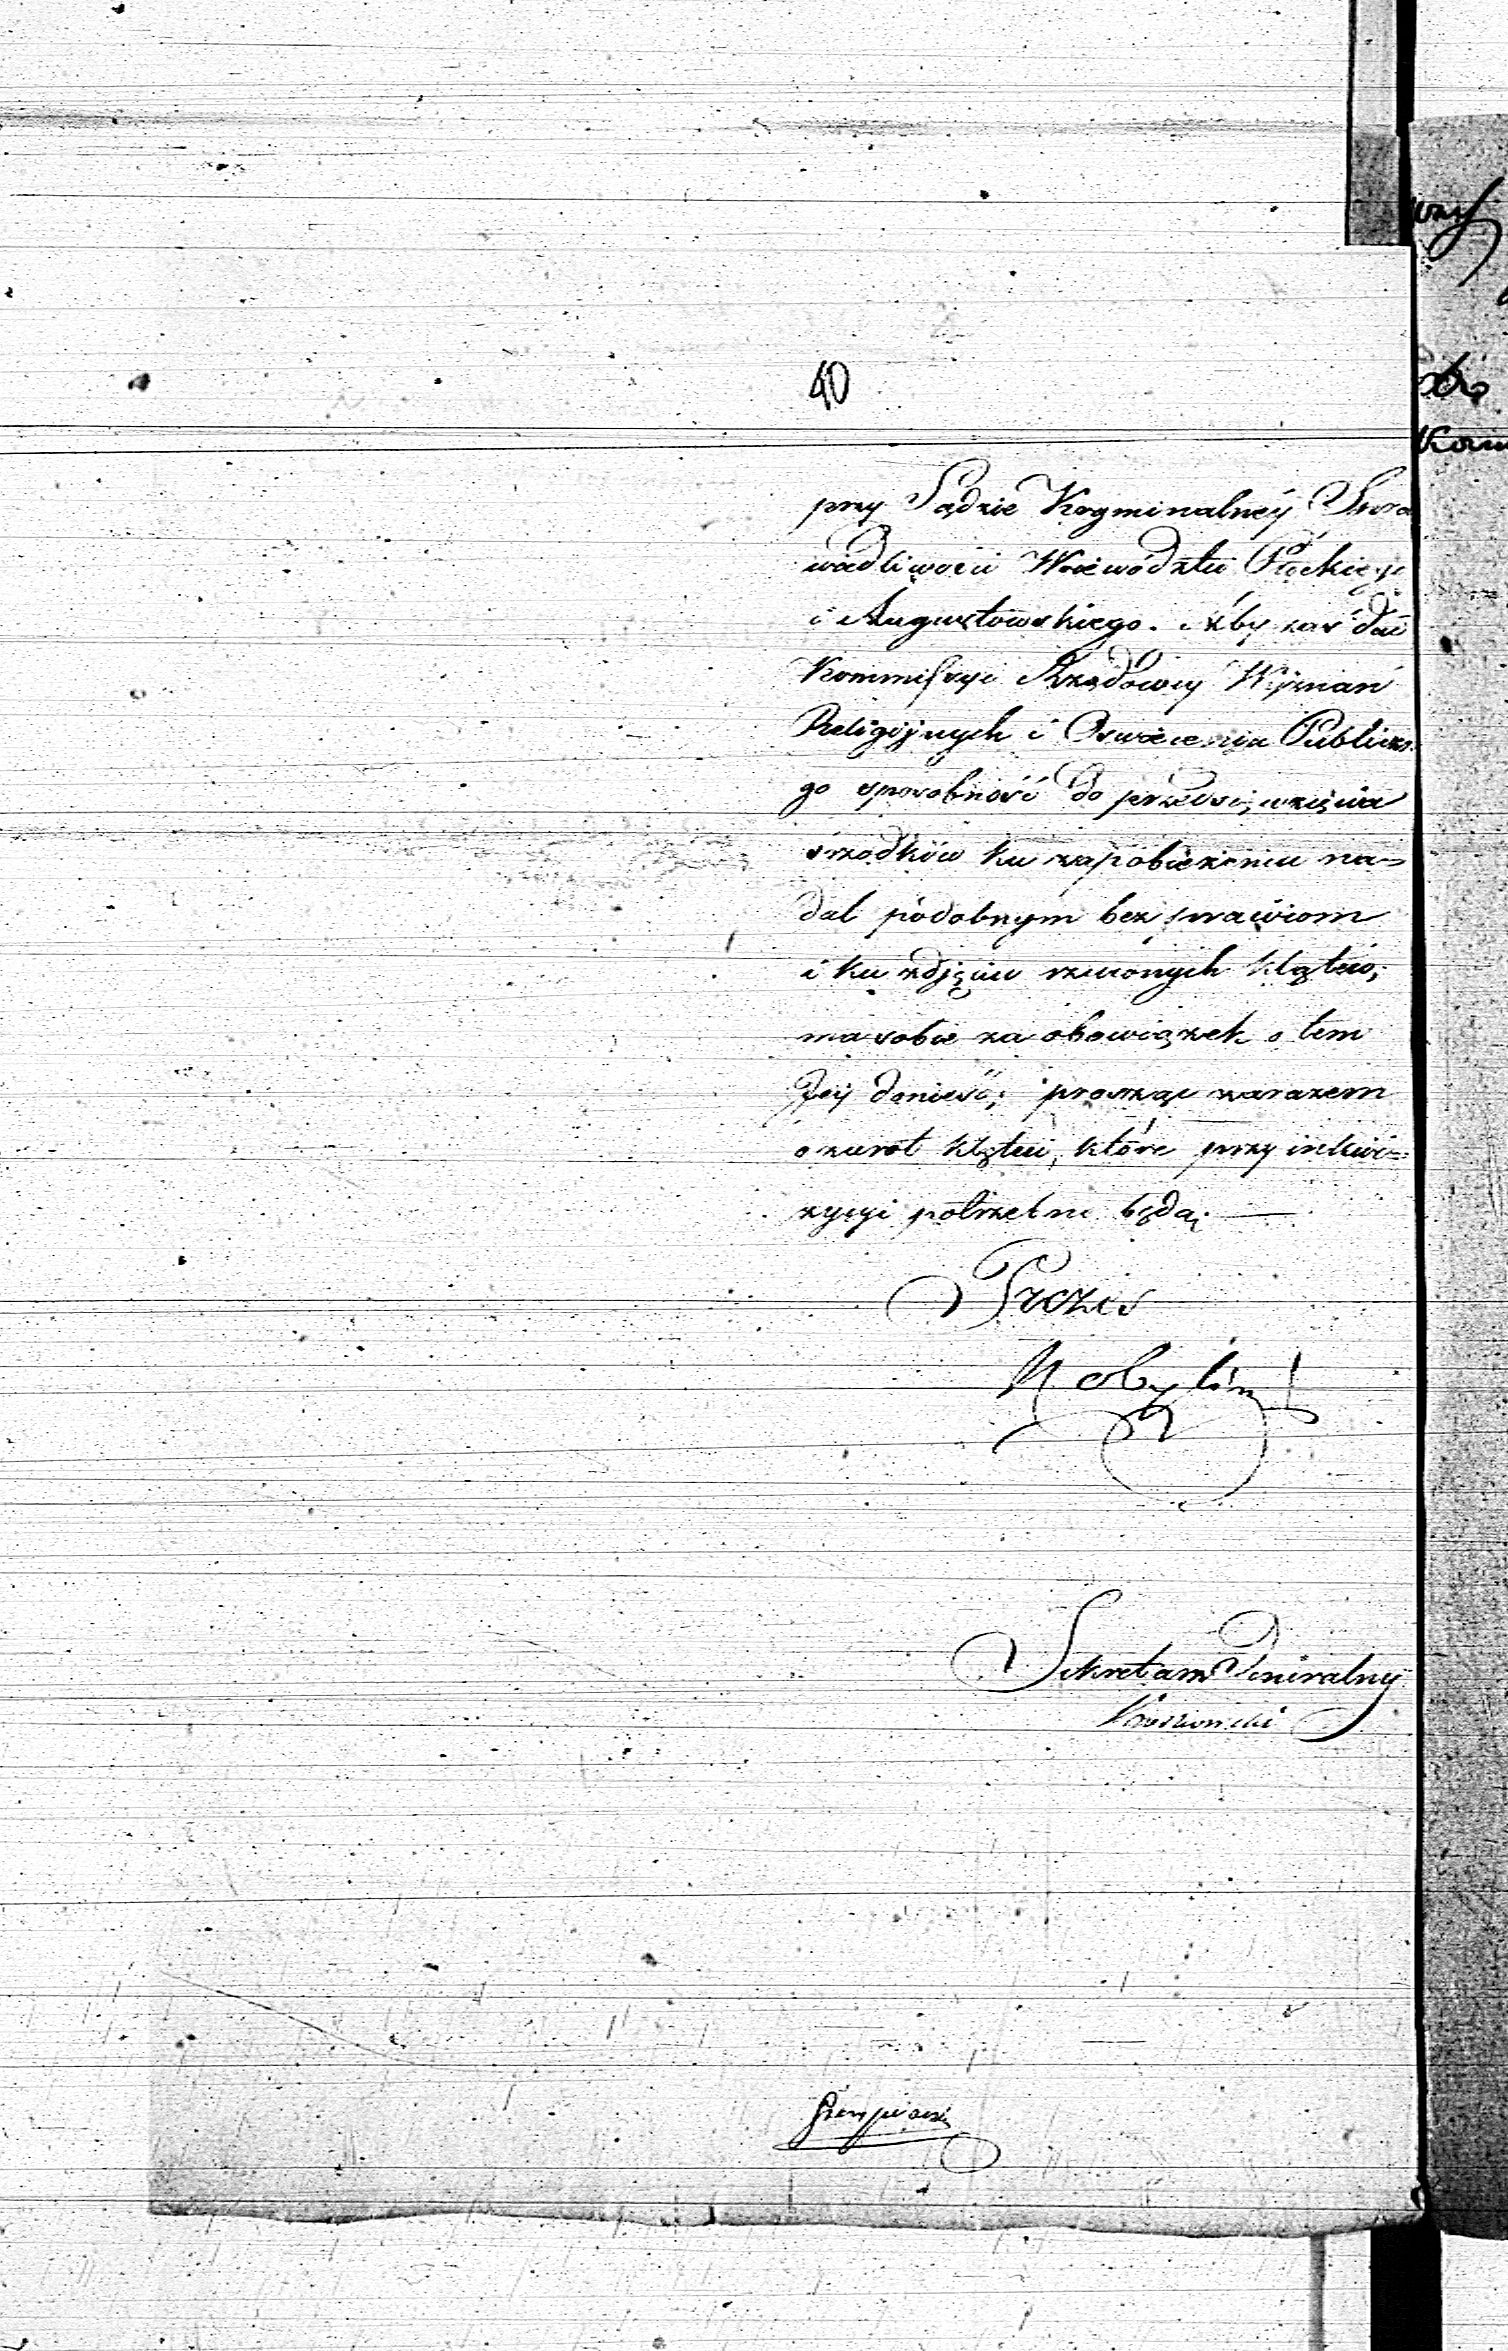 40
przy Sądzie Krygminalney Spra
wiedliwości Woiewództw Płockiego
i Augustowskiego. Ażby zaś dać
Kommissyi Rządowey Wyznań
Religijnych i Oswiecenia Publiczne
go sposobność do przedsięwzięcia
srzodków ku zapobieżeniu na=
dal podobnym bezprawiom
i ku zdjęciu rzuconych klątew,
ma sobie za obowiązek o tem
Jey donieść; prosząc zarazem
o zwrot klątew, które przy inkwi=
zycyi potrzebne będą.
Prezes
Kobyliński
Sekretarz Jeneralny